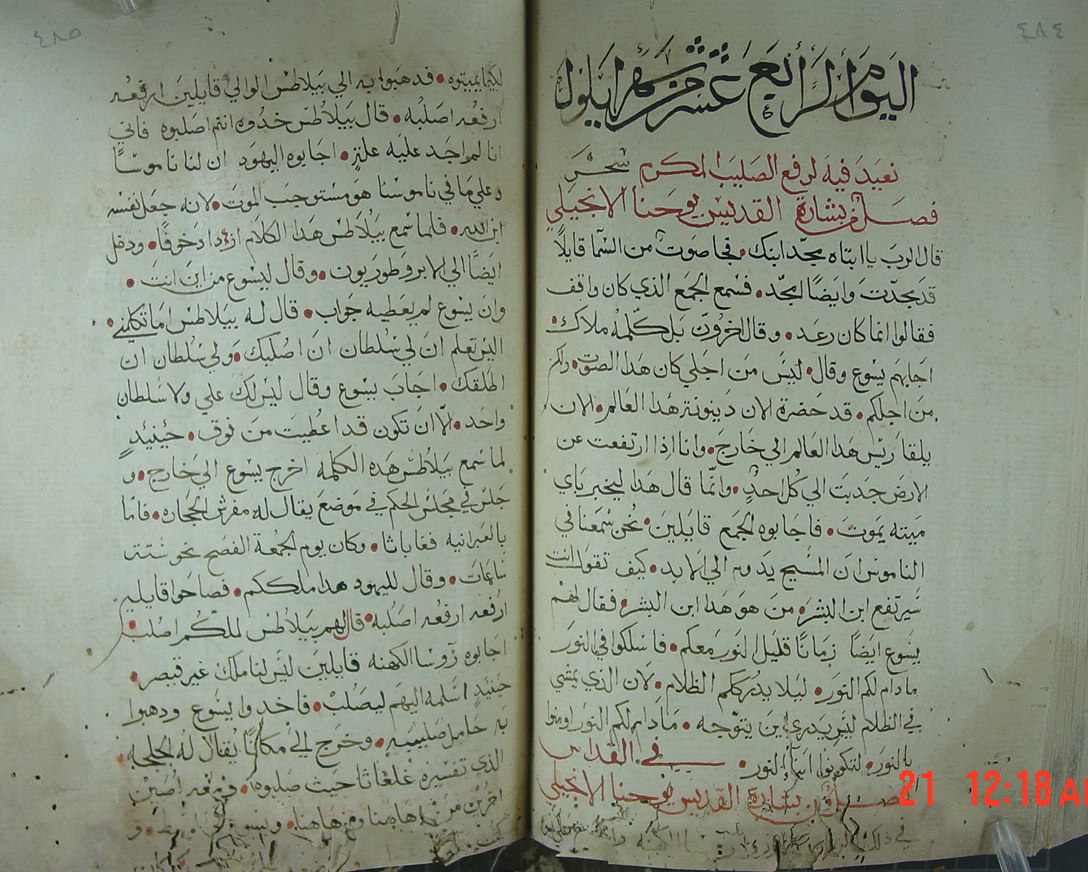 ٤٨٤
اليوم الرابع عشر من شهر ايلول
نعيد فيه لرفع الصليب المكرم سحر
فصل من بشارة القديس يوحنا الانجيلي
قال الرب يا ابتاه مجد ابنك • فجا صوت من السما قايلاً
قد مجدت وايضًا امجد • فسمع الجمع الذي كان واقف
فقالوا انما كان رعد • وقال اخرون بل كلمه ملاك •
اجابهم يسوع وقال • ليس من اجلي كان هدا الصوت • ولكن
من اجلكم • قد حضرة الان دينونة هدا العالم • الان
يلقا ريس هدا العالم الي خارج • وانا ادا ارتفعت عن
الارض جدبت الي كل احد • وانما قال هدا ليخبر باي
ميته يموت • فاجابوه الجمع قايلين • نحن سمعنا في
الناموس ان المسيح يدوم الي الابد • كيف تقول انت
سيرتفع ابن البشر • من هو هدا ابن البشر • فقال لهم
يسوع ايضًا زمانًا قليل النور معكم • فاسلكوا في النور
مادام لكم النور • ليلا يدرككم الظلام • لان الذي يمشي
في الظلام ليس يدري اين يتوجه • مادام لكم النور اومنوا
بالنور • لتكونوا ابنا النور •
في القداس
فصل من بشارة القديس يوحنا الانجيلي
في ذلك
21 12:18 A
٤٨٥
لكيما يميتوه • فدهبوا به الي بيلاطس الوالي قايلين ارفعه
ارفعه اصلبه • قال بيلاطس خدوه انتم اصلبوه فاني
انا لم اجد عليه علة • اجابوه اليهود ان لنا ناموسًا
وعلي ما في ناموسنا هو مستوجب الموت • لانه جعل نفسه
ابن الله • فلما سمع بيلاطس هدا الكلام ازداد خوفًا • ودخل
ايضًا الي الابروطوريون • وقال ليسوع من اين انت •
وان يسوع لم يعطيه جواب • قال له بيلاطس اما تكلمني •
اليس تعلم ان لي سلطان ان اصلبك • ولي سلطان ان
اطلقك • اجاب يسوع وقال ليس لك علي ولا سلطان
واحد • الا ان تكون قد اعطيت من فوق • حينيدٍ
لما سمع بيلاطس هده الكلمه اخرج يسوع الي خارج • و
جلس في مجلس الحكم في موضع يقال له مفرش الحجاره • فاما
بالعبرانيه فغاباثا • وكان يوم الجمعة الفصح نحو ستت
ساعات • وقال لليهود هدا ملككم • فصاحوا قايلين
ارفعه ارفعه اصلبه • قال لهم بيلاطس لملككم اصلب •
اجابوه روسا الكهنه قايلين ليس لنا ملك غير قيصر •
حينيدٍ اسلمه اليهم ليصلب • فاخدوا يسوع ودهبوا
به حامل صليبه • وخرج الي مكانًا يقال له الجلجه •
الذي تفسيره غلغاثا حيث صلبوه • ومعه اصين
اخرين من هاهنا ومن هاهنا • ويسوع